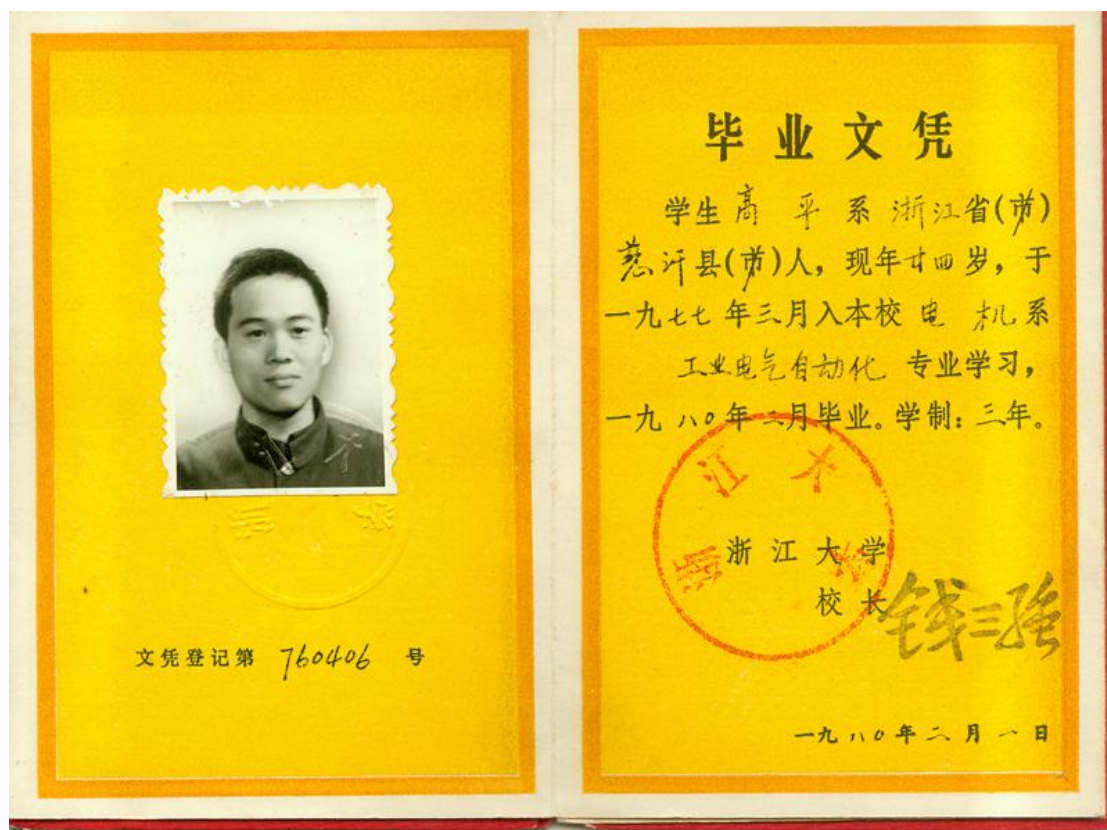 文凭登记第 760406 号
毕业文凭
学生 高 平 系 浙江省(市)
慈溪县(市)人，现年廿四岁，于
一九七七年三月入本校 电 机系
工业电气自动化 专业学习，
一九八〇年二月毕业。学制：三年。
浙江大学
浙江大学
校长 钱三强
一九八〇年二月一日